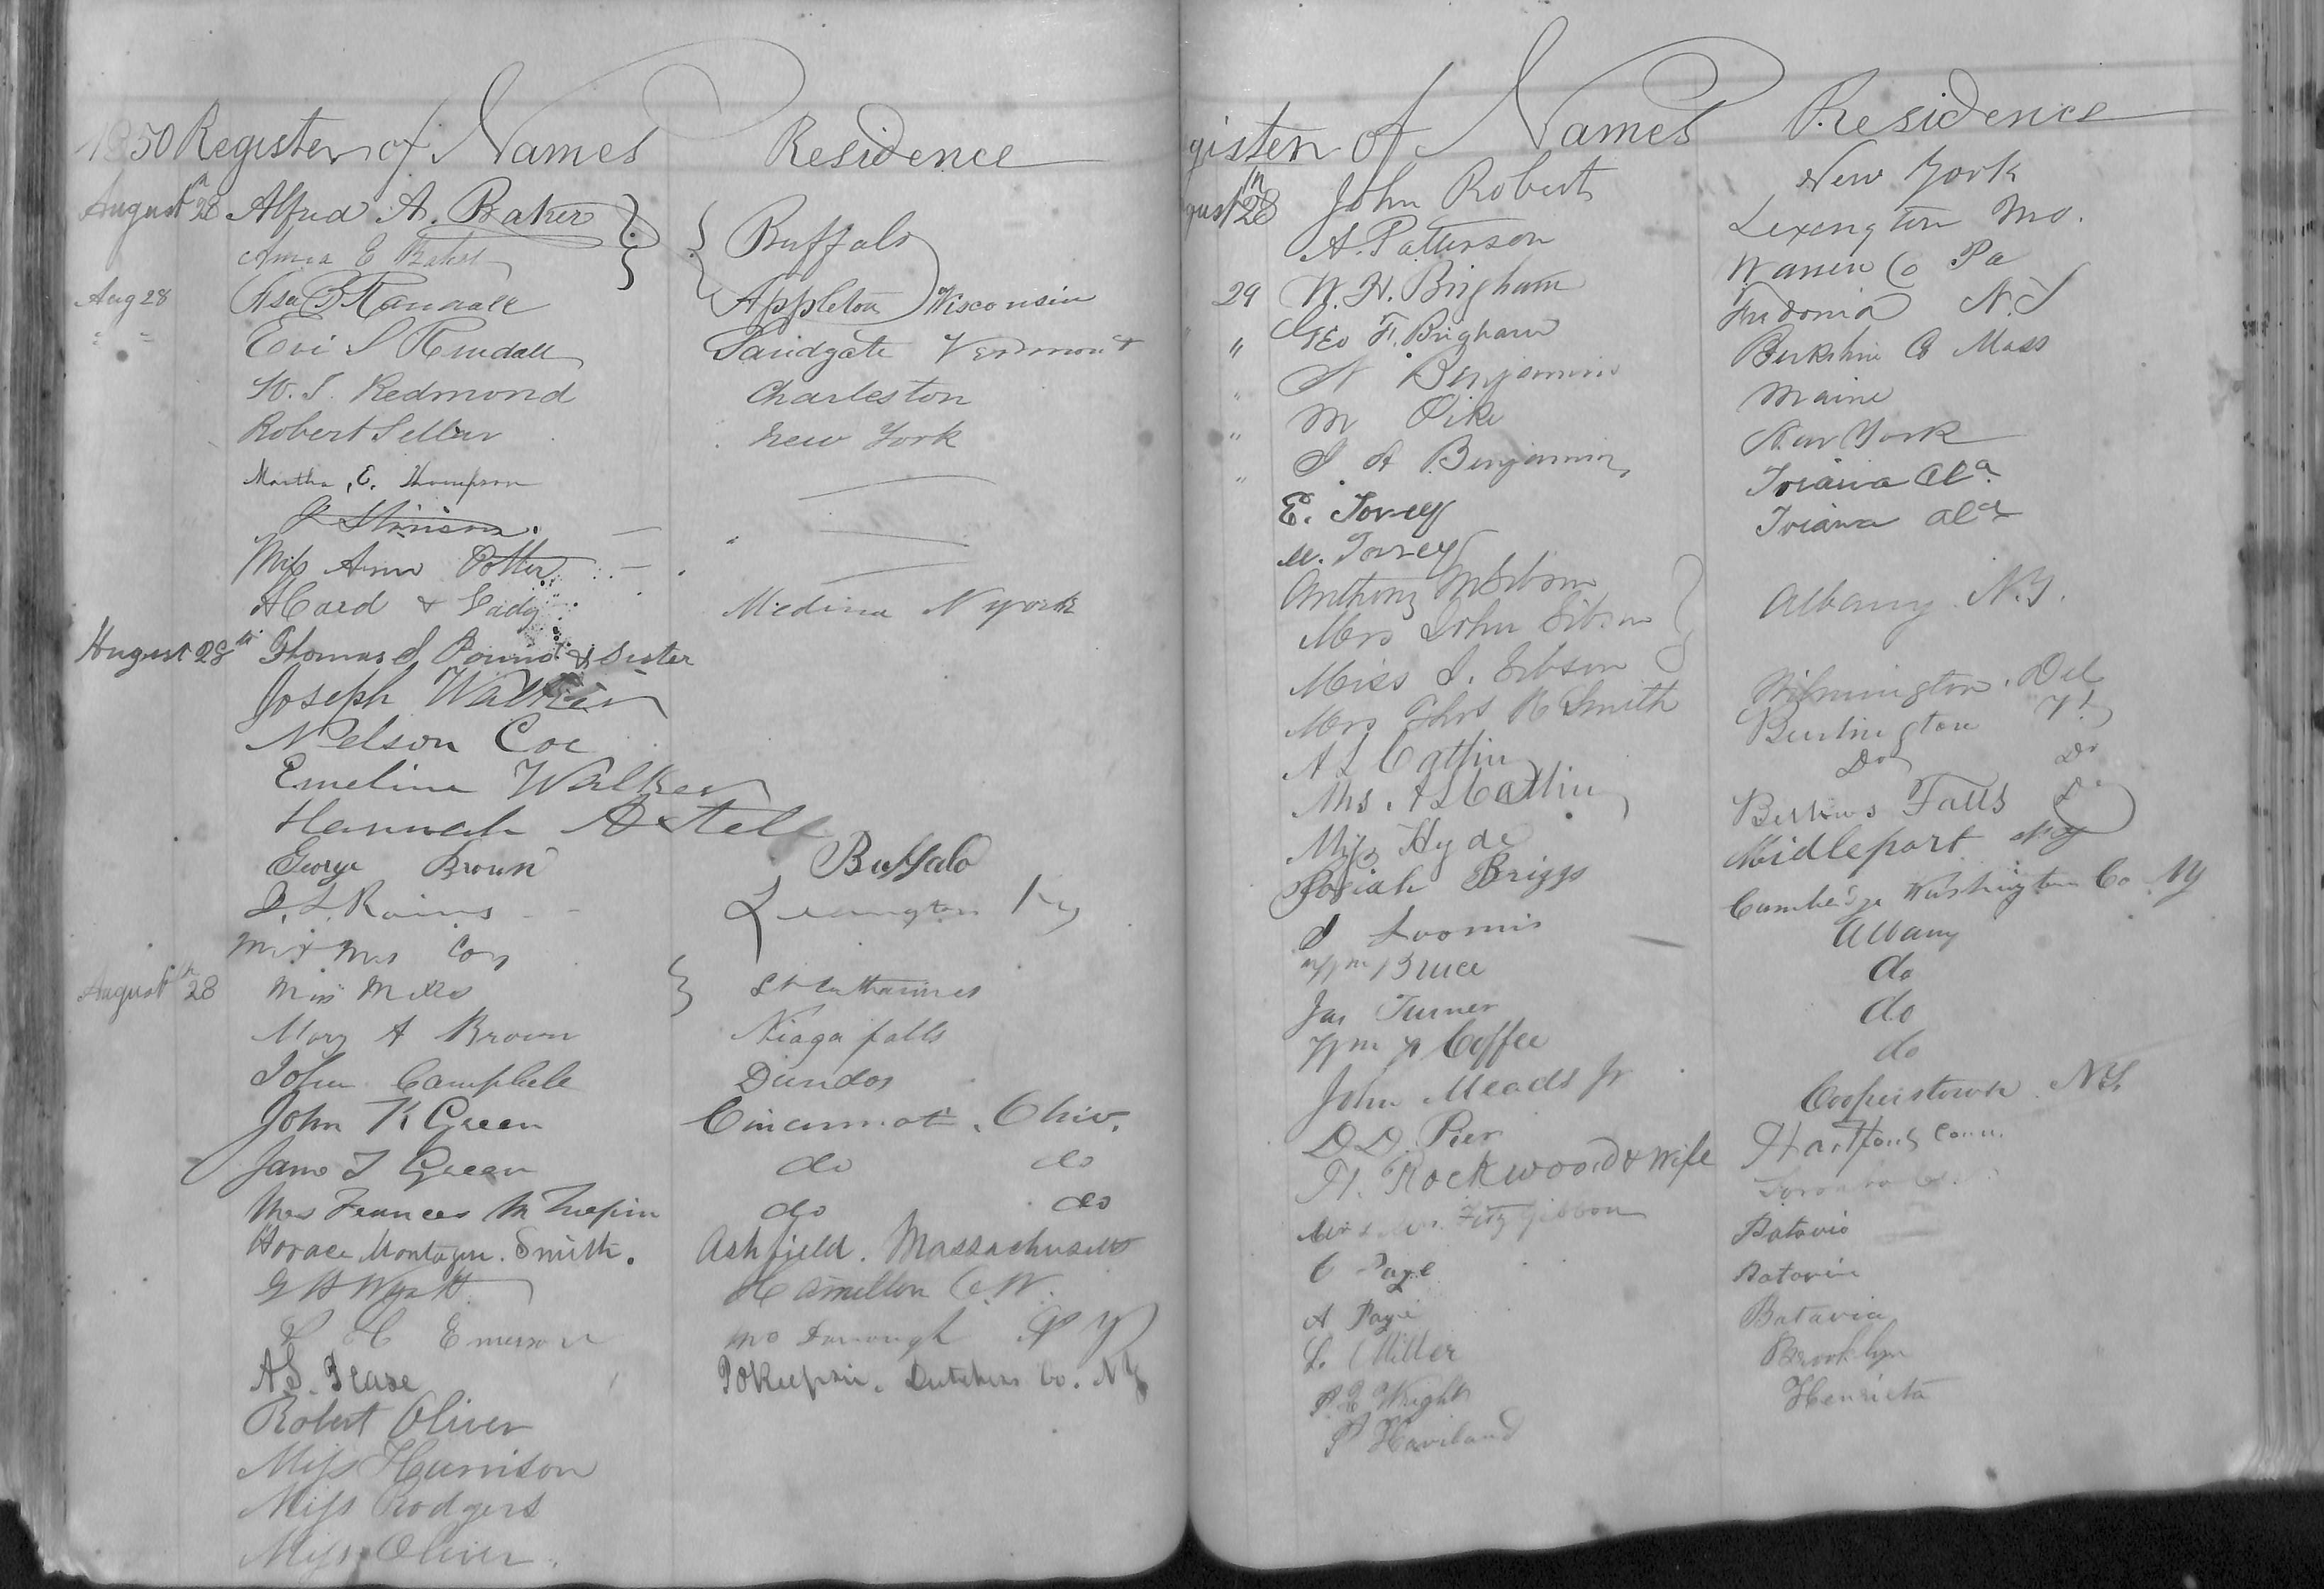 1850 Register of Names Residence
August 28 Alfred A. Baker Buffalo
E Baker
Aug 28 Asa B Randall Appleton Wisconsin
" " Evi S Randall Sandgate Vermont
W. S. Redmond Charleston
Robert Sellar New York
Martha, E. Thompson
Miss Ann Potter
A Card & Lady Medina N York
August 28th Thomas S Pound & Sister
Joseph Walker
Nelson Coe
Emeline Walker
Hannah Astell
George Brown Buffalo
S. L. Rains Lexington Ky
Mr & Mrs Coy
August 28th Miss Mills St Catharines
Mary A Brown Niaga falls
John Campbell Dundas
John K Green Cincinnati, Ohio.
Jane T Green do do
Mrs Frances M do do
Horace Montague Smith. Ashfield. Massachusetts
G H Wyatt Hamilton C.W.
L H Emerson Mc Donough N Y
A S. Pease Pokeepsie. Dutchess Co. N Y
Robert Oliver
Miss Harrison
Miss Rodgers
Miss Oliver.
gister of Names Residence
gust 28th John Robert New York
A. Patterson Lexington Mo.
29 W. H. Brigham Warren Co Pa
" Geo F. Brigham Fredonia N. Y
" N Benjamin Berkshire Co Mass
" M Pike Maine
" S A Benjamin New York
E. Torrey Triana Ala
M. Torrey Triana Ala
Anthony M Gibson
Mrs John Gibson Albany N.Y.
Miss S. Gibson
Mrs Thos R Smith Wilmington, Del
A L Catlin Burlington Vt
Mrs. A L Catlin Do Do
Miss Hyde Bellows Falls Do
Josiah Briggs Midleport N Y
S Loomis Cambridge Washington Co NY
Wm Bruce Albany
Jas Turner do
Wm A Coffee do
John Meads Jr do
D. D. Pier Cooperstown N.Y.
H. Rockwood & Wife Hartford Conn.
Mr & Mrs. Fitz Gibbon Toronto
C Page Batavia
A Page Batavia
L. Miller Batavia
Wright Brooklyn
Haviland Henrietta